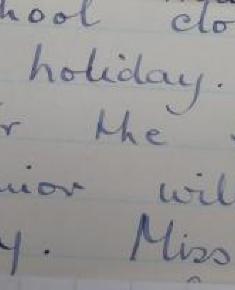 hool clo
holiday.
r the
nior wil
y. Miss